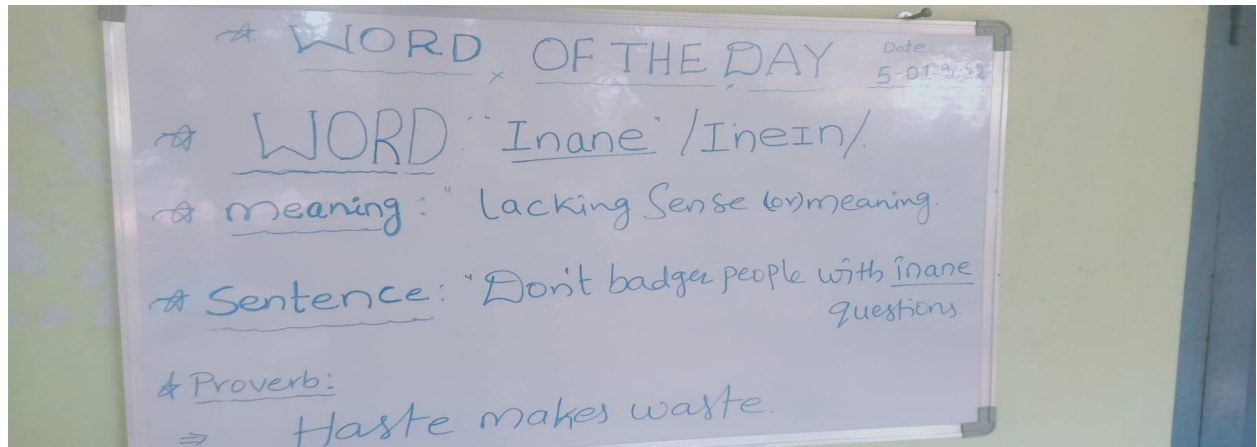 ☆ WORD OF THE DAY
Date
5-01-
☆ WORD: "Inane" /IneIn/.
☆ meaning: " Lacking Sense (or) meaning.
☆ Sentence: "Don't badger people with inane
questions.
☆ Proverb:
⇒ Haste makes waste.